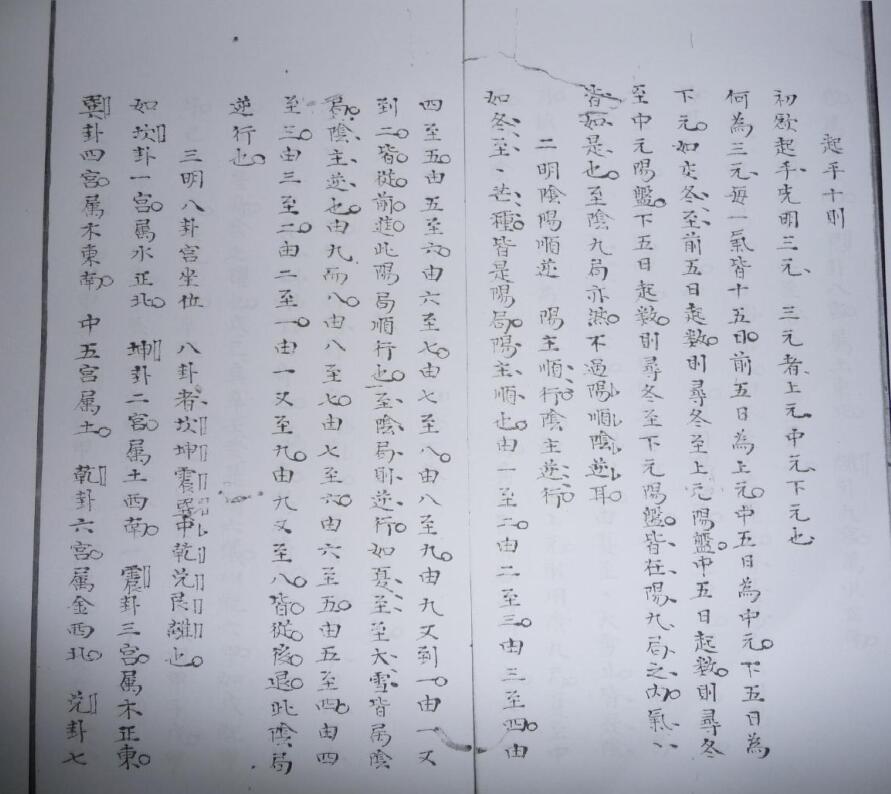 起手十則
初欲起手先明三元、三元者、上元中元下元也
何為三元、每一氣皆十五日。前五日為上元。中五日為中元。下五日為
下元。如交冬至前五日起數。則尋冬至上元陽盤。中五日起數。則尋冬
至中元陽盤。下五日起數。則尋冬至下元陽盤。皆在陽九局之內。氣
皆如是也。至陰九局亦然。不過陽順陰逆耳
二明陰陽順逆　陽主順行陰主逆行
如冬至、芒種皆是陽局。陽主順也。由一至二。由二至三。由三至四。由
四至五。由五至六。由六至七。由七至八。由八至九。由九又到一。由一又
到二。皆從前進。此陽局順行也。至陰局則逆行。如夏至至大雪皆屬陰
局。陰主逆也。由九而八。由八至七。由七至六。由六至五。由五至四。由四
至三。由三至二。由二至一。由一又至九。由九又至八。皆從後退。此陰局
逆行也。
三明八卦宮坐位　八卦者、坎坤震巽中乾兌艮離也。
如坎卦一宮。屬水正北。坤卦二宮。屬土西南。震卦三宮。屬木正東。
巽卦四宮。屬木東南。中五宮屬土。乾卦六宮。屬金西北。兌卦七